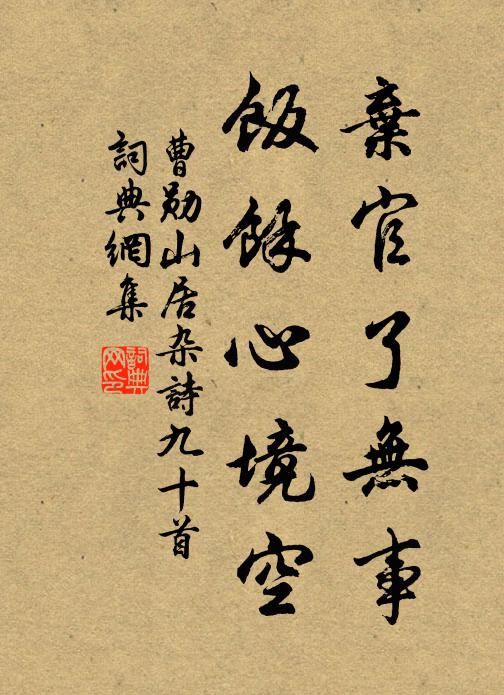 棄官了無事
飯餘心境空
曹勛山居杂詩九十首
詞典網集
詞典
网印